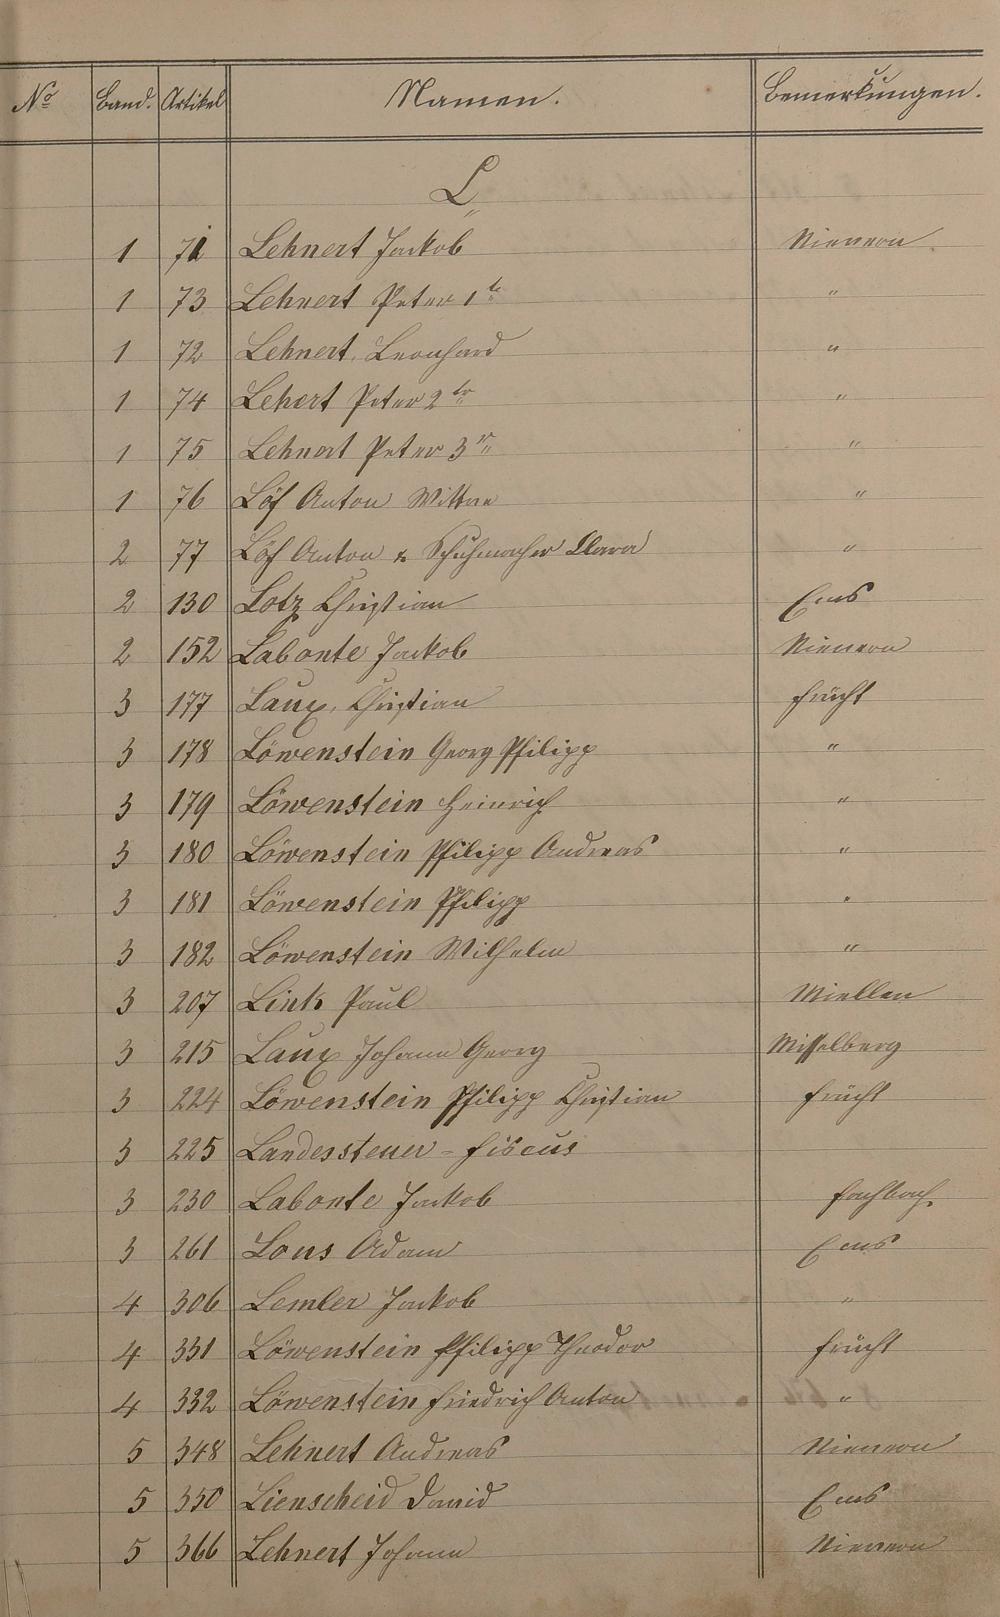 No Band. Artikel Namen. Bemerkungen.
L
1 71 Lehnert Jackob Nievern
1 73 Lehnert Peter 1te "
1 72 Lehnert, Leonhard "
1 74 Lehert Peter 2ter "
1 75 Lehnert Peter 3r "
1 76 Löf Anton Wittwe "
2 77 Löf Anton & Schuhmacher Clara "
2 130 Lotz Christian Ems
2 152 Labonte Jackob Nievern
3 177 Laux, Christian Frücht
3 178 Löwenstein Georg Philipp "
3 179 Löwenstein Heinrich "
3 180 Löwenstein Philipp Andreas "
3 181 Löwenstein Philipp "
3 182 Löwenstein Wilhelm "
3 207 Links Paul Miellen
3 215 Laux Johann Georg Misselberg
3 224 Löwenstein Philipp Christian Frücht
3 225 Landessteuer-Fiscus
3 230 Labonte Jackob Fachbach
3 261 Lous Adam Ems
4 306 Lemler Jackob "
4 331 Löwenstein Philipp Theodor Frücht
4 332 Löwenstein Friedrich Anton "
5 348 Lehnert Andreas Nievern
5 350 Lienscheid David Ems
5 366 Lehnert Johann Nievern